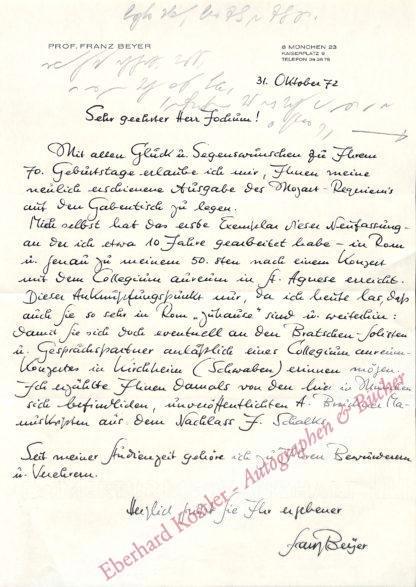 PROF. FRANZ BEYER
8 MÜNCHEN 23
KAISERPLATZ 9
TELEFON 34 36 75
31. Oktober 72
Sehr geehrter Herr Jochum!
Mit allen Glück u. Segenswünschen zu Ihrem
70. Geburtstage erlaube ich mir, Ihnen meine
neulich erschienene Ausgabe des Mozart-Requiems
auf den Gabentisch zu legen.
Mich selbst hat das erste Exemplar dieser Neufassung -
an der ich etwa 10 Jahre gearbeitet habe - in Rom
u. genau zu meinem 50.sten nach einem Konzert
mit dem Collegium aureum in St. Agnese erreicht.
Dieser Anknüpfungspunkt nur, da ich heute las, daß
auch Sie so sehr in Rom „zuhause" sind u. weiterhin:
damit Sie sich doch eventuell an den Bratschen-Solisten
u. Gesprächspartner anläßlich eines Collegium aureum-
Konzertes in Kirchheim (Schwaben) erinnern mögen -
Ich erzählte Ihnen damals von den hier in München
sich befindlichen, unveröffentlichten A. Ma-
nuskripten aus dem Nachlass F. Schalks.
Seit meiner Studienzeit gehöre ich zu Ihren Bewunderern
u. Verehrern.
Herzlich grüßt Sie Ihr ergebener
Franz Beyer
Eberhard Köstler - Autographen & Bücher